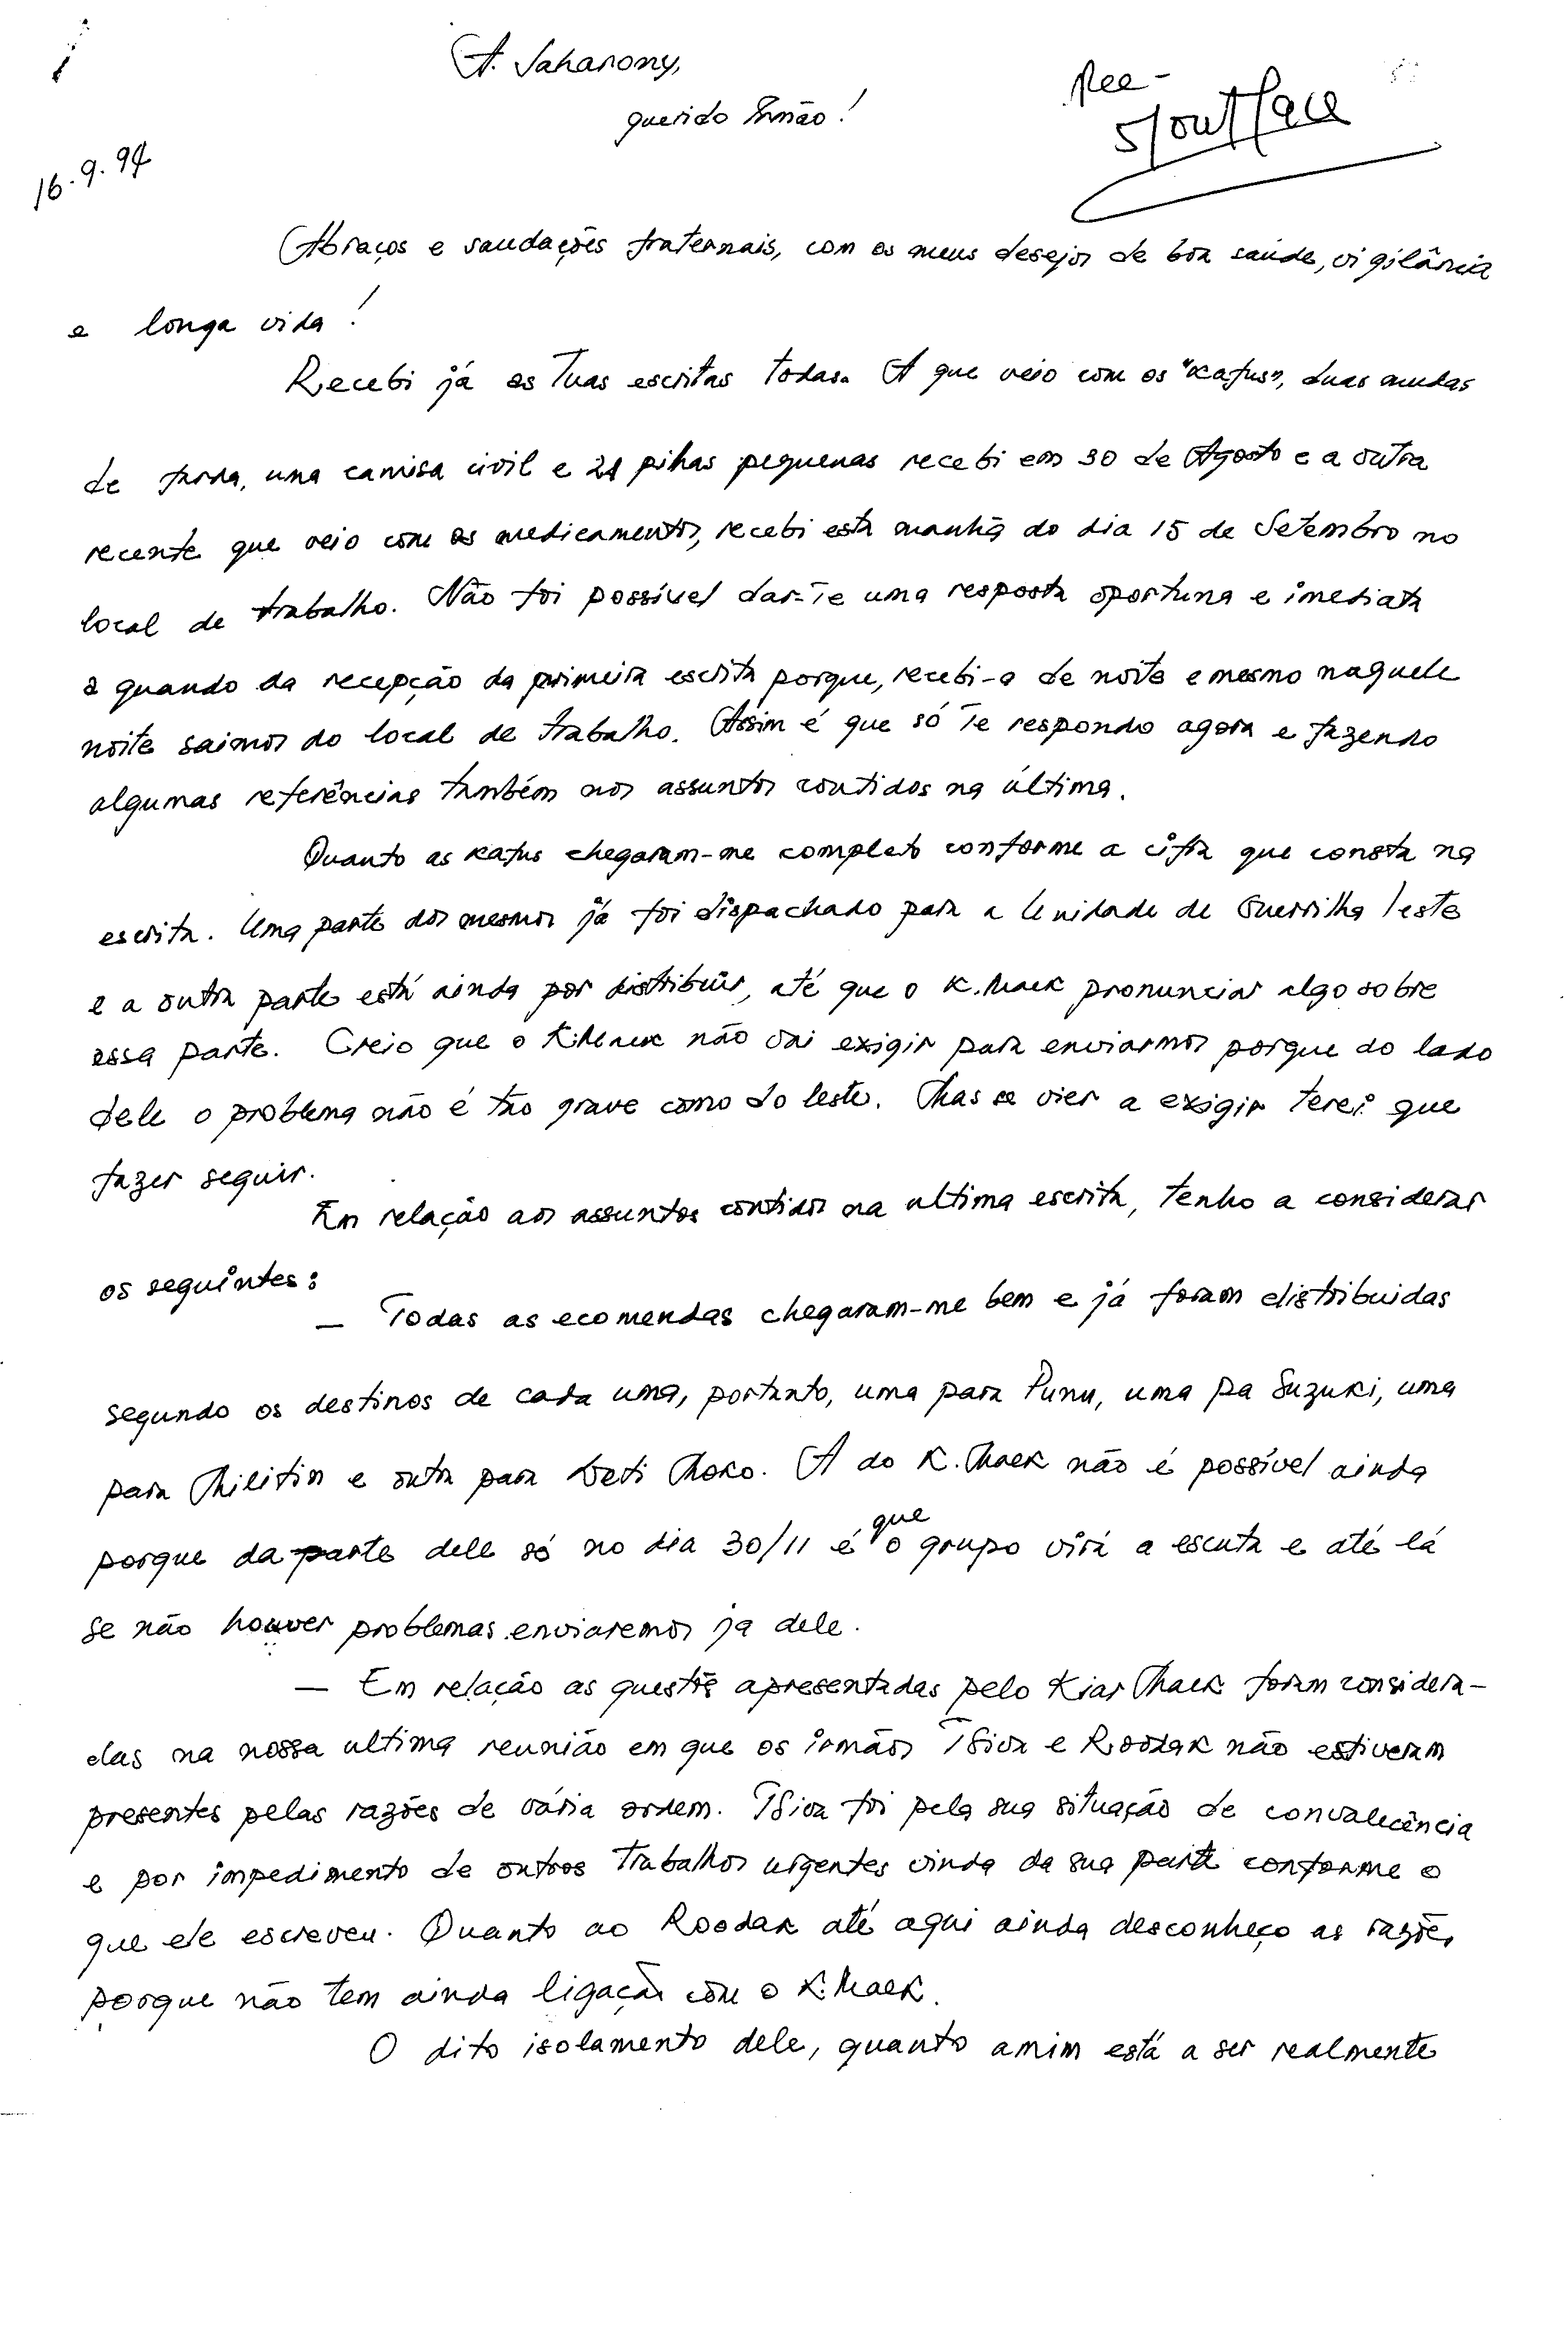 A. Sahanony,
querido Irmão!
Ree -
16.9.94
Abraços e saudações fraternais, com os meus desejos de boa saúde, vigilância
e longa vida!
Recebi já as Tuas escritas todas. A que veio com os "Kafus", duas mudas
de farda, uma camisa civil e 24 pilhas pequenas recebi em 30 de Agosto e a outra
recente que veio com os medicamentos, recebi esta manhã do dia 15 de Setembro no
local de trabalho. Não foi possível dar-Te uma resposta oportuna e imediata
a quando da recepção da primeira escrita porque, recebi-a de noite e mesmo naquele
noite saimos do local de trabalho. Assim é que só Te respondo agora e fazendo
algumas referências também nos assuntos contidos na última.
Quanto as Kafus chegaram-me completo conforme a cifra que consta na
escrita. Uma parte dos mesmos já foi dispachado para a Unidade de Guerrilha leste
e a outra parte está ainda por distribuir, até que o K.Maek pronunciar algo sobre
essa parte. Creio que o K.Maek não vai exigir para enviarmos porque do lado
dele o problema não é tão grave como do leste. Mas se vier a exigir terei que
fazer seguir.
Em relação aos assuntos contidos na ultima escrita, tenho a considerar
os seguintes:
— Todas as ecomendas chegaram-me bem e já foram distribuidas
segundo os destinos de cada uma, portanto, uma para Punu, uma pa Suzuki, uma
para Militin e outra para Deti Moko. A do K.Maek não é possível ainda
porque da parte dele só no dia 30/11 é que o grupo virá a escuta e até lá
se não houver problemas enviaremos ja dele.
— Em relação as questõe apresentadas pelo Kiar Maek foram considera-
das na nossa ultima reunião em que os irmãos Tsiva e Roodak não estiveram
presentes pelas razões de vária ordem. Tsiva foi pela sua situação de convalecência
e por impedimento de outros Trabalhos urgentes vinda da sua parte conforme o
que ele escreveu. Quanto ao Roodak até aqui ainda desconheço as razões,
porque não tem ainda ligação com o K.Maek.
O dito isolamento dele, quanto amim está a ser realmente